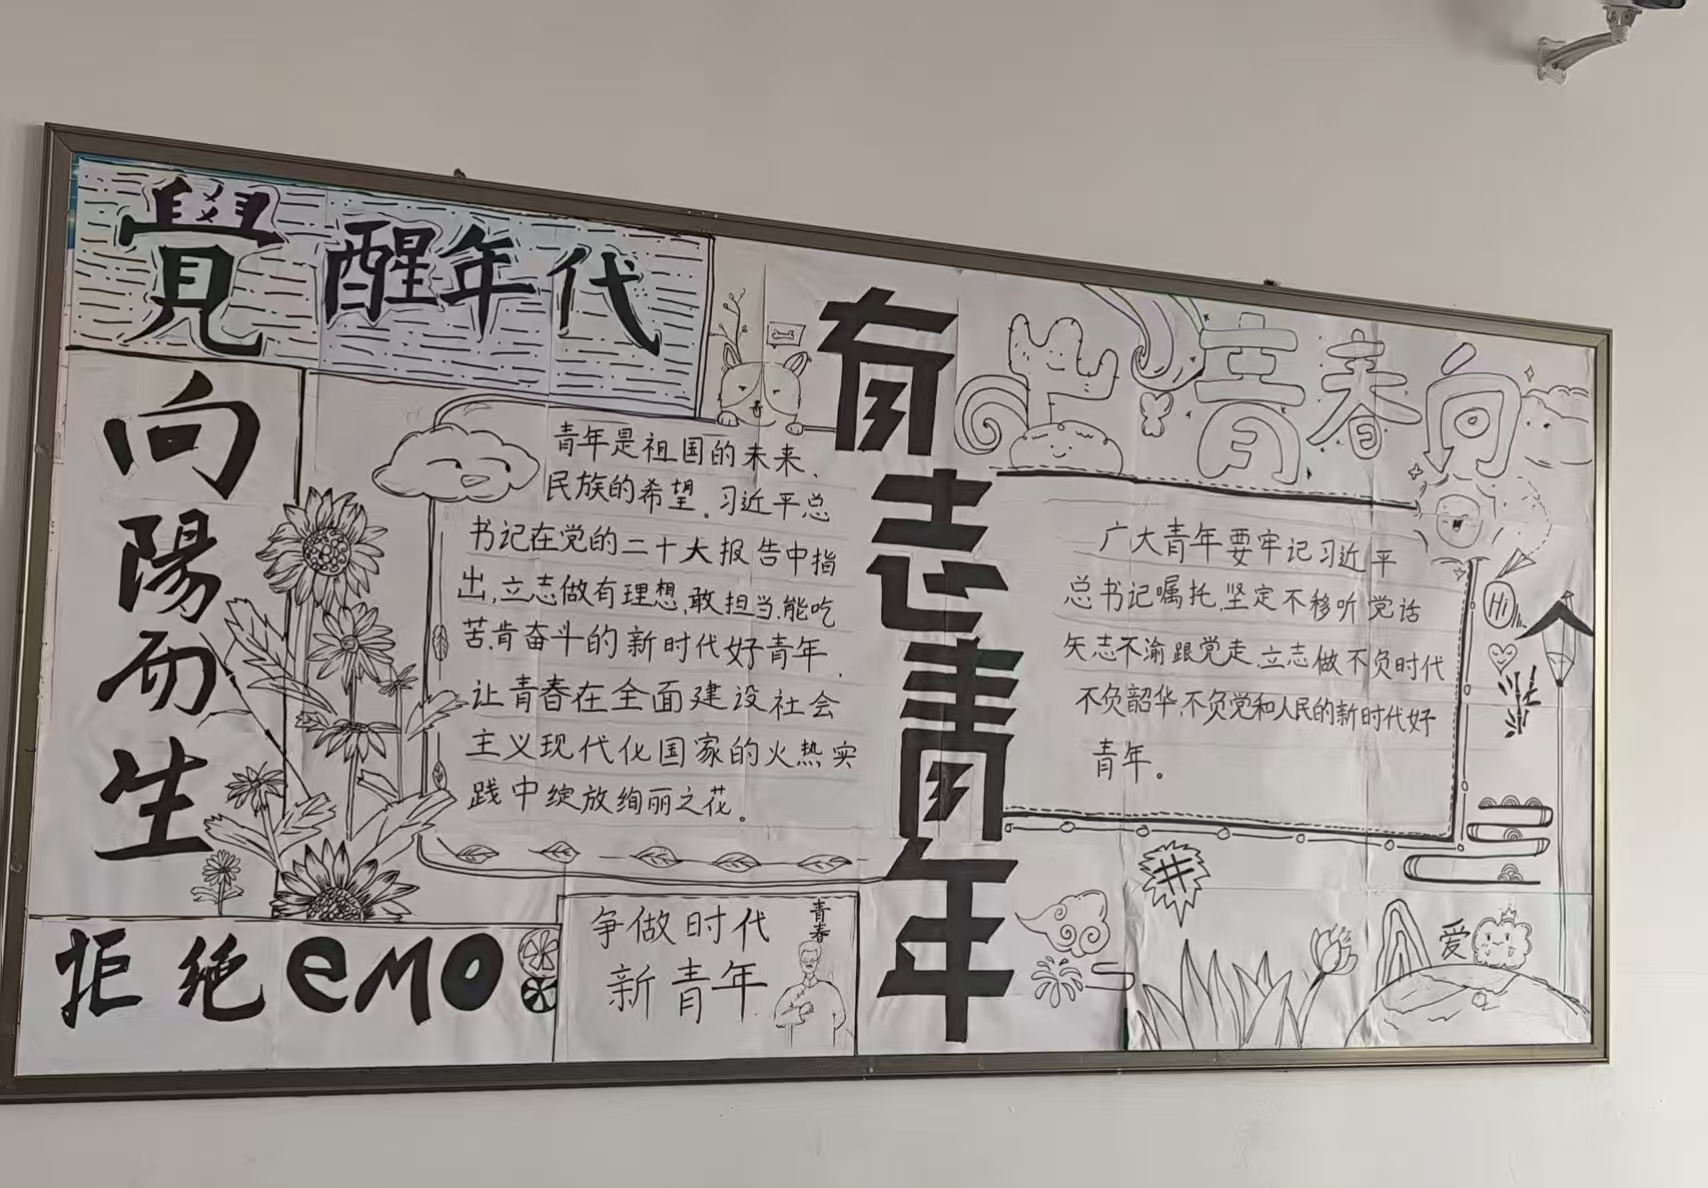 覺醒年代
向陽而生
青年是祖国的未来、
民族的希望。习近平总
书记在党的二十大报告中指
出,立志做有理想、敢担当、能吃
苦、肯奋斗的新时代好青年,
让青春在全面建设社会
主义现代化国家的火热实
践中绽放绚丽之花。
拒绝emo
争做时代
新青年
青春
有志青年
青春向
广大青年要牢记习近平
总书记嘱托,坚定不移听党话
矢志不渝跟党走,立志做不负时代
不负韶华,不负党和人民的新时代好
青年。
Hi
爱